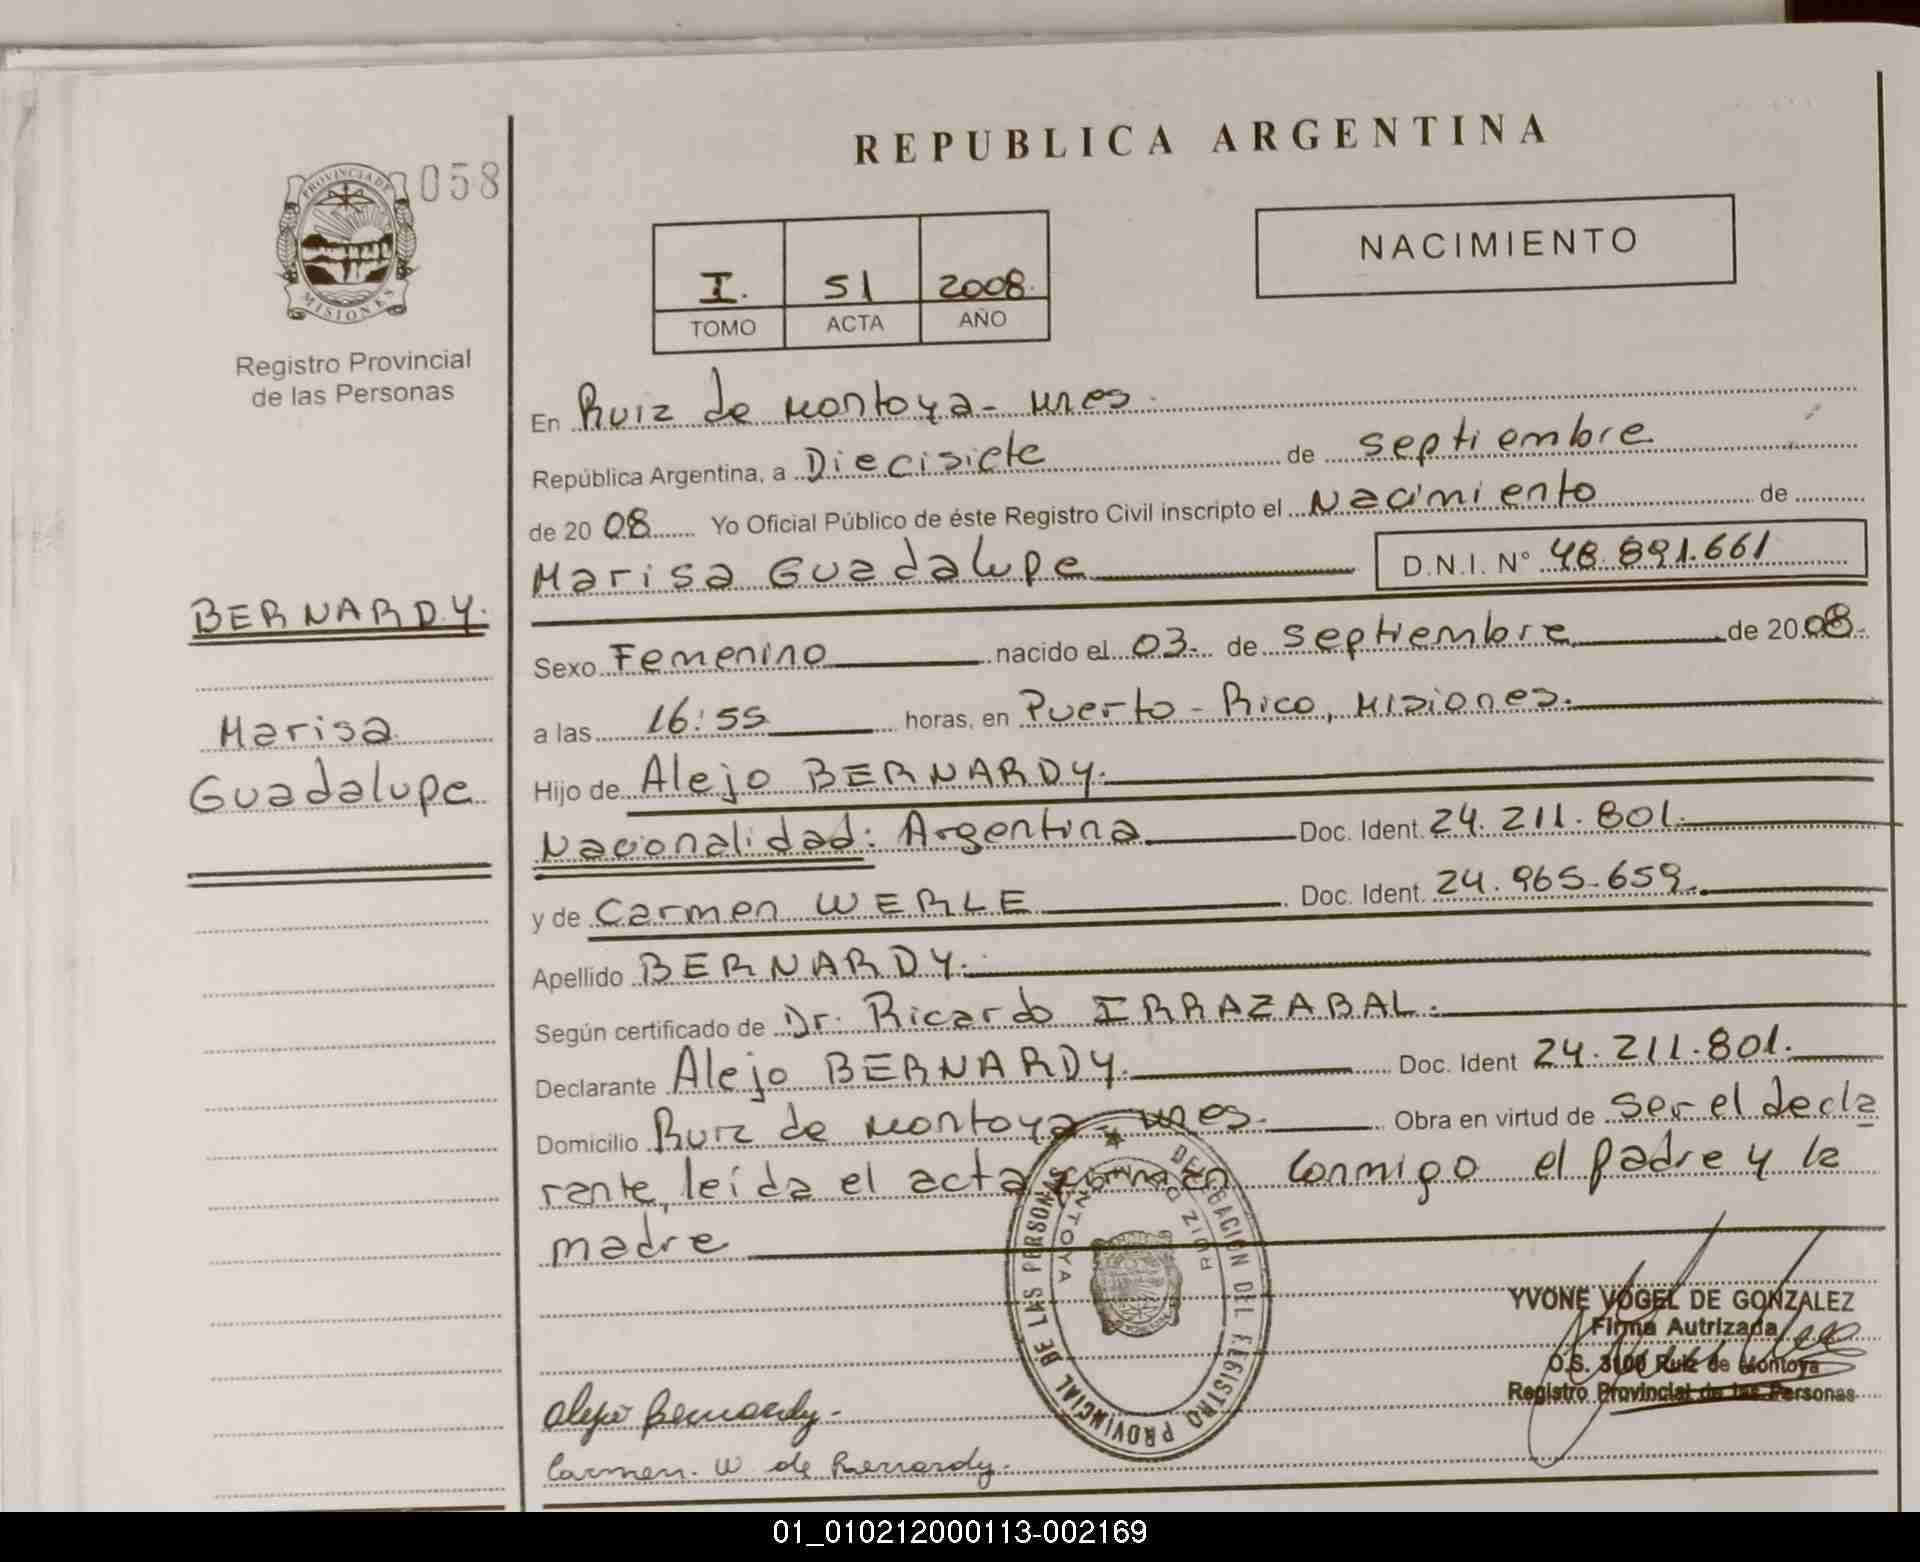 REPUBLICA ARGENTINA
PROVINCIA DE
MISIONES
058
Registro Provincial
de las Personas
I. 51 2008.
TOMO ACTA AÑO
NACIMIENTO
BERNARDY.
Marisa
Guadalupe
En Ruiz de Montoya - Mnes.
República Argentina, a Diecisiete de septiembre
de 2008 Yo Oficial Público de éste Registro Civil inscripto el Nacimiento de
Marisa Guadalupe D.N.I. N° 48.891.661
Sexo Femenino nacido el 03. de septiembre de 2008.
a las 16:55 horas, en Puerto - Rico, Misiones.
Hijo de Alejo BERNARDY.
Nacionalidad: Argentina Doc. Ident. 24.211.801.
y de Carmen WERLE Doc. Ident. 24.965.659.
Apellido BERNARDY.
Según certificado de Dr. Ricardo IRRAZABAL.
Declarante Alejo BERNARDY. Doc. Ident 24.211.801.
Domicilio Ruiz de Montoya - Mnes. Obra en virtud de ser el decla
rante, leída el acta conmigo el padre y la
madre
DELEGACION DEL REGISTRO PROVINCIAL DE LAS PERSONAS
RUIZ DE MONTOYA
YVONE VOGEL DE GONZALEZ
Firma Autrizada
O.S. 3100 Ruiz de Montoya
Registro Provincial de las Personas
Alejo Bernardy.
Carmen. W de Bernardy.
01_010212000113-002169